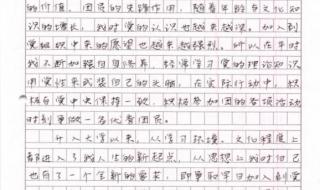 的价值、团员的先锋作用，随着年龄与文化知
识的增长，我对党的认识也越来越深。加入到
党组织中来的愿望也越来越强烈。所以在平时
我不断加强自身修养，认真学习党的理论知识
用党性来武装自己的头脑，在实际行动中，积
极自党中央保持一致，积极参加团的各项活动
时刻更做一名优秀团员。
升入大学以来，从学习环境、文化程度上
都进入了我人生的新起点，从思想上我对自己
也有了一个全新的要求，即争取早日加入到党